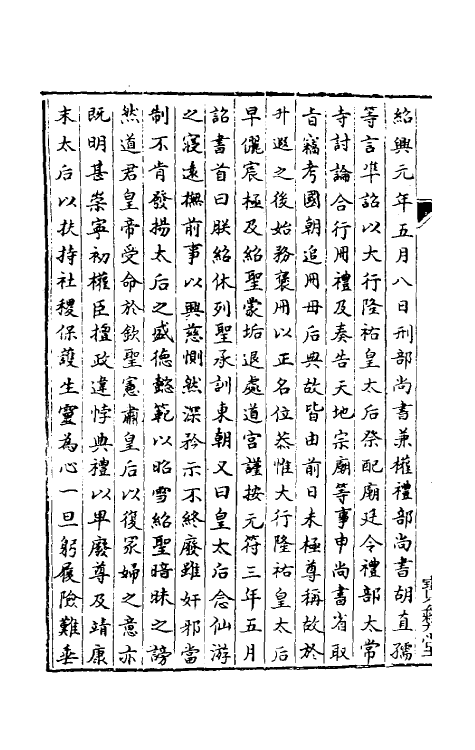 紹興元年五月八日刑部尚書兼權禮部尚書胡直孺
等言準詔以大行隆祐皇太后祭配廟廷令禮部大常
寺討論合行冊禮及奏告天地宗廟等事申尚書省取
旨竊考國朝追冊母后典故皆由前日未極尊稱故於
升遐之後始務褒冊以正名位恭惟大行隆祐皇太后
早儷宸極及紹聖蒙垢退處道宫謹按元符三年五月
詔書首曰朕紹休列聖承訓東朝又曰皇太后念仙游
之寖遠撫前事以興慈惻然深矜示不終廢雖奸邪當
制不肯發揚太后之盛德懿範以昭雪紹聖暗昧之謗
然道君皇帝受命於欽聖憲肅皇后以復冢婦之意亦
既明甚崇寧初權臣擅政違悖典禮以卑廢尊及靖康
末太后以扶持社稷保護生靈為心一旦躬履險難垂
寶彝堂